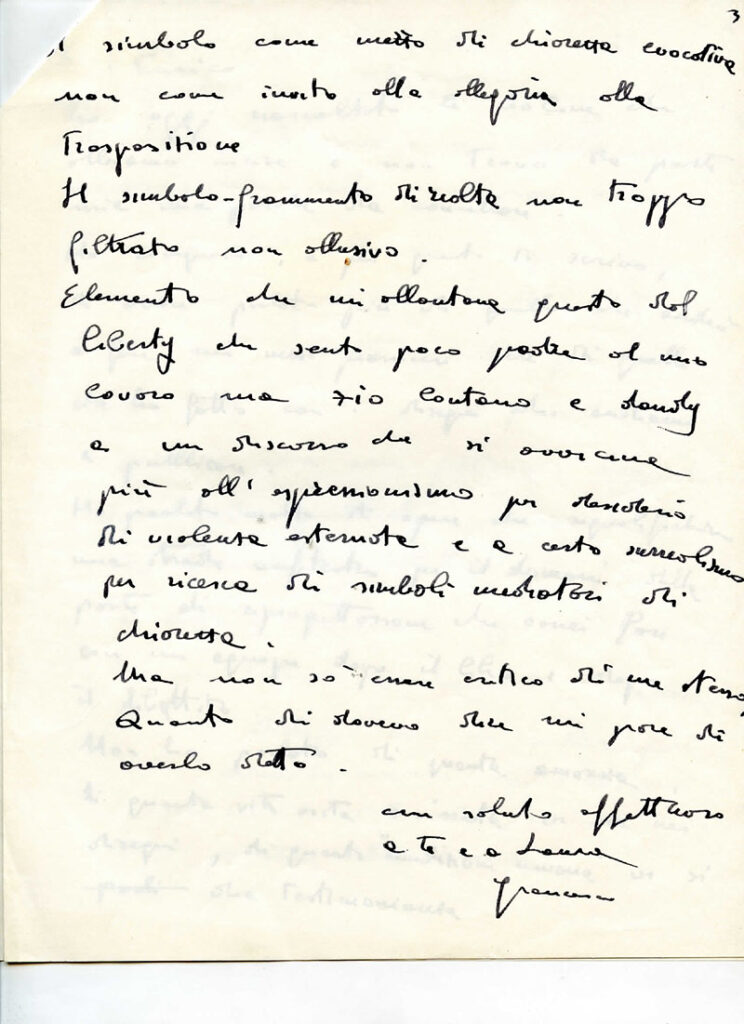 3
il simbolo come mezzo di chiarezza evocativa
non come invito alla allegoria alla
Trasposizione
Il simbolo-frammento di realtà non troppo
filtrato non allusivo.
Elemento che mi allontana questo dal
liberty che sento poco padre al mio
lavoro ma zio lontano e dandy
a un discorso che si avvicina
più all'espressionismo per desiderio
di violenza esternata e a certo surrealismo
per ricerca di simboli mediatori di
chiarezza.
Ma non so essere critico di me stesso
Quanto di dovevo dire mi pare di
averlo detto.
un saluto affettuoso
a te e a Laura
Francesco